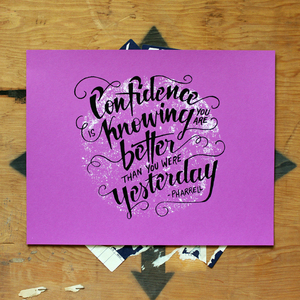 Confidence
IS Knowing YOU ARE
better
THAN YOU WERE
Yesterday
-PHARRELL